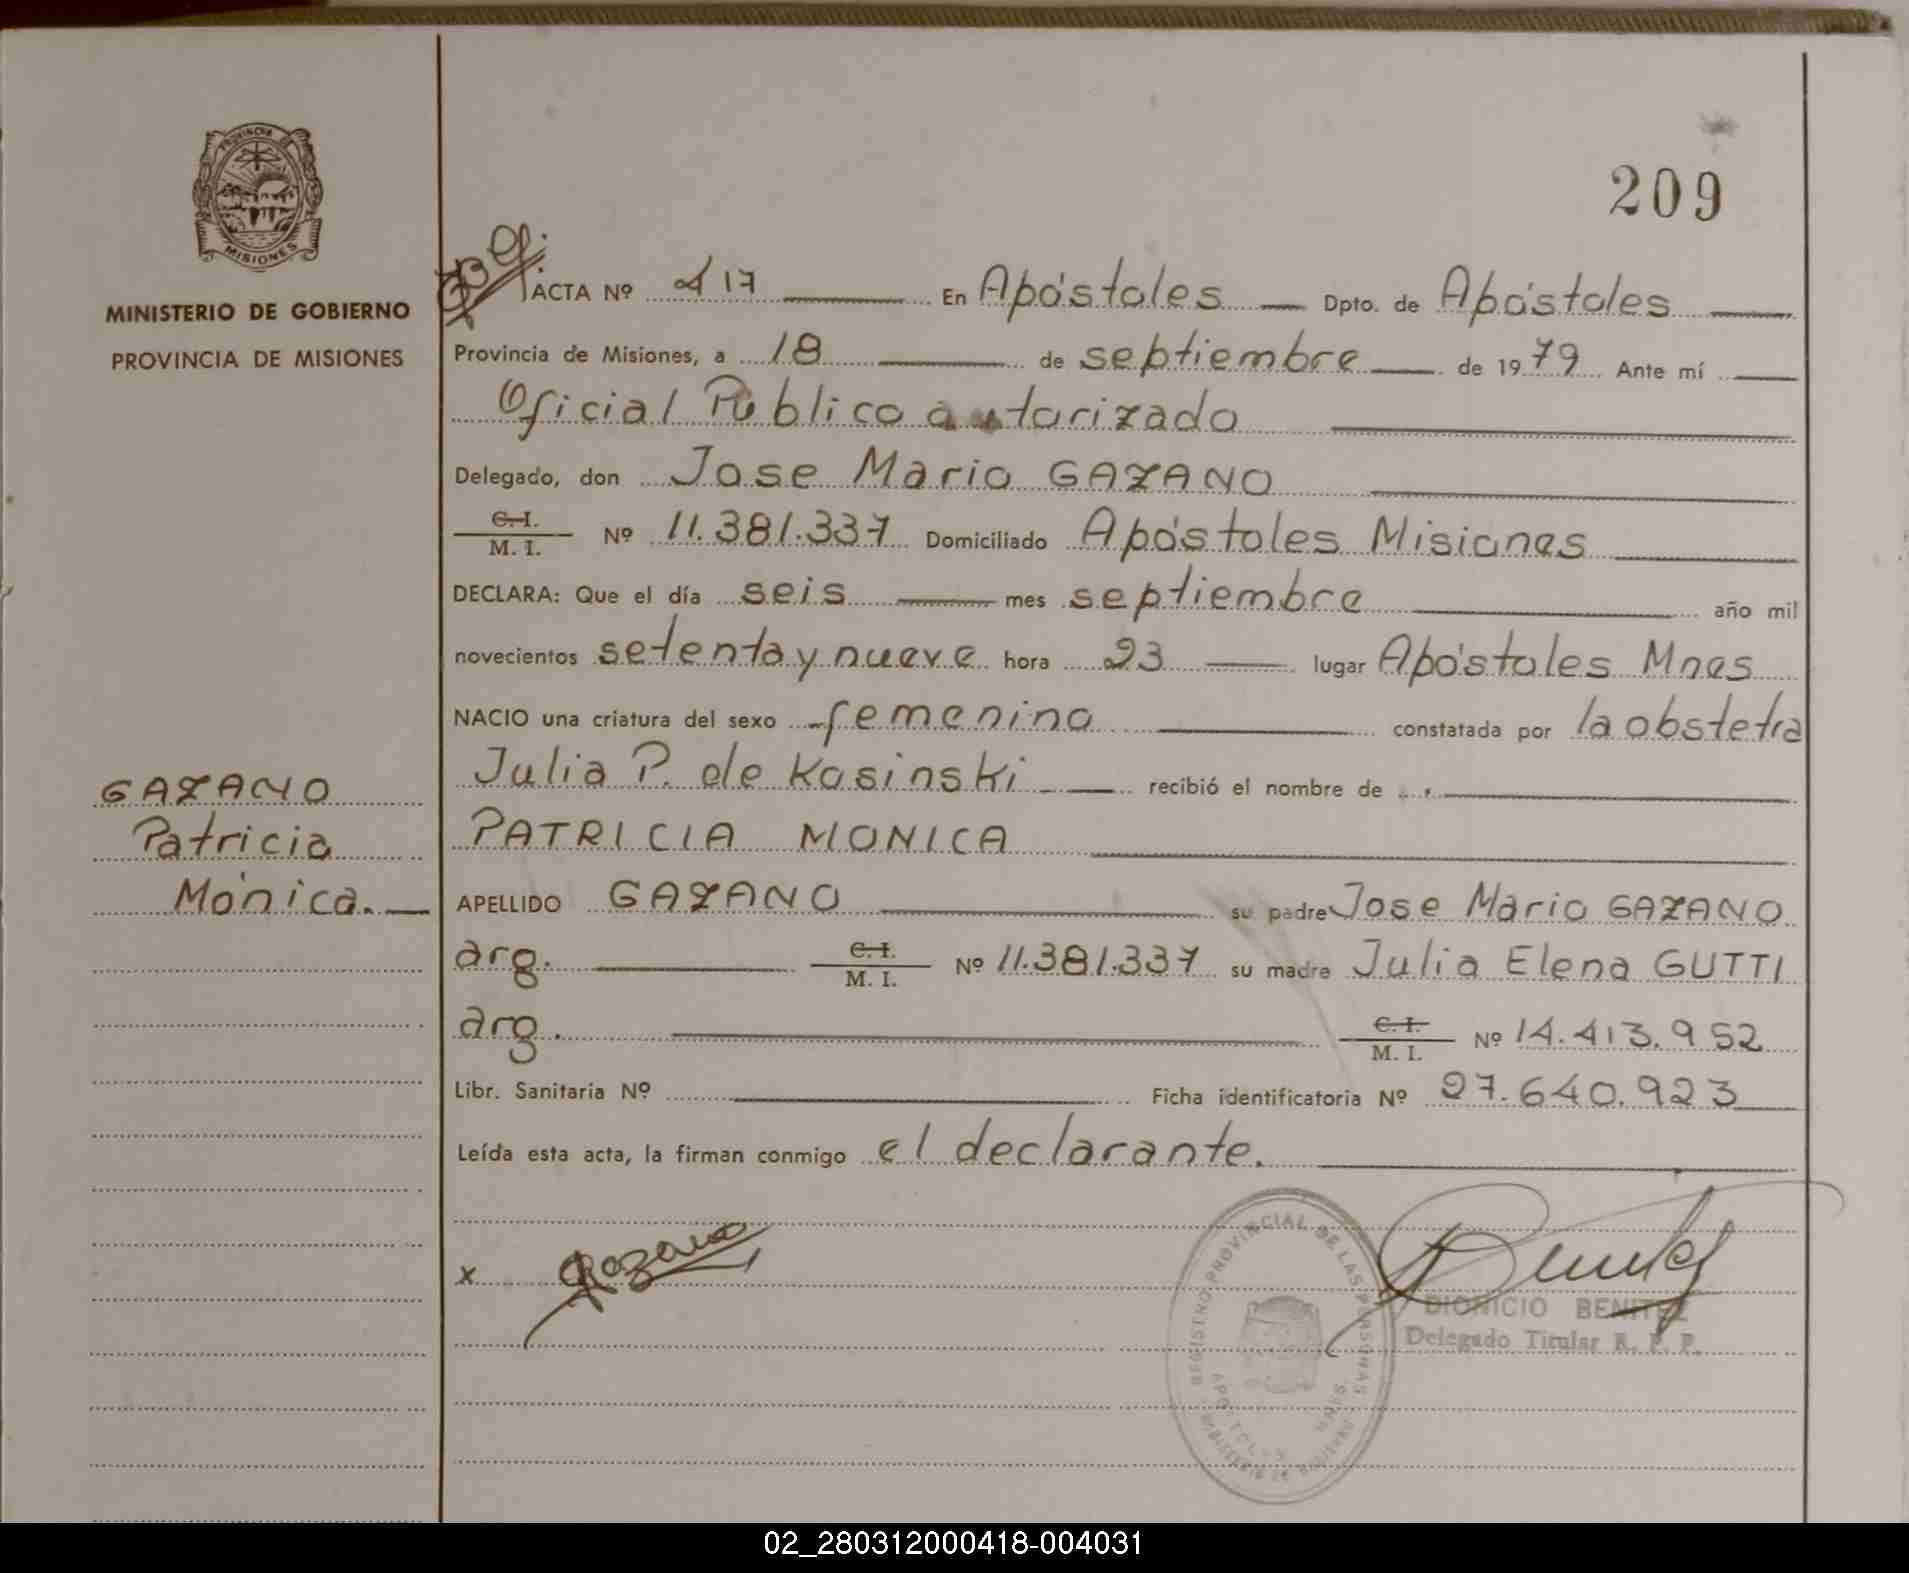 PROVINCIA DE
MISIONES
MINISTERIO DE GOBIERNO
PROVINCIA DE MISIONES
209
ACTA Nº 417 En Apóstoles Dpto. de Apóstoles
Provincia de Misiones, a 18 de septiembre de 1979 Ante mí
Oficial Público autorizado
Delegado, don Jose Mario GAZANO
C. I.
M. I. Nº 11.381.337 Domiciliado Apóstoles Misiones
DECLARA: Que el día seis mes septiembre año mil
novecientos setenta y nueve hora 23 lugar Apóstoles Mnes
NACIO una criatura del sexo femenino constatada por la obstetra
Julia P. de Kosinski recibió el nombre de
PATRICIA MONICA
APELLIDO GAZANO su padre Jose Mario GAZANO
arg. C. I.
M. I. Nº 11.381.337 su madre Julia Elena GUTTI
arg. C. I.
M. I. Nº 14.413.952
Libr. Sanitaria Nº Ficha identificatoria Nº 27.640.923
Leída esta acta, la firman conmigo el declarante.
GAZANO
Patricia
Mónica.
x Gazano
REGISTRO PROVINCIAL DE LAS PERSONAS
APOSTOLES MNES.
MINISTERIO DE GOBIERNO
DIONICIO BENITEZ
Delegado Titular R. P. P.
02_280312000418-004031